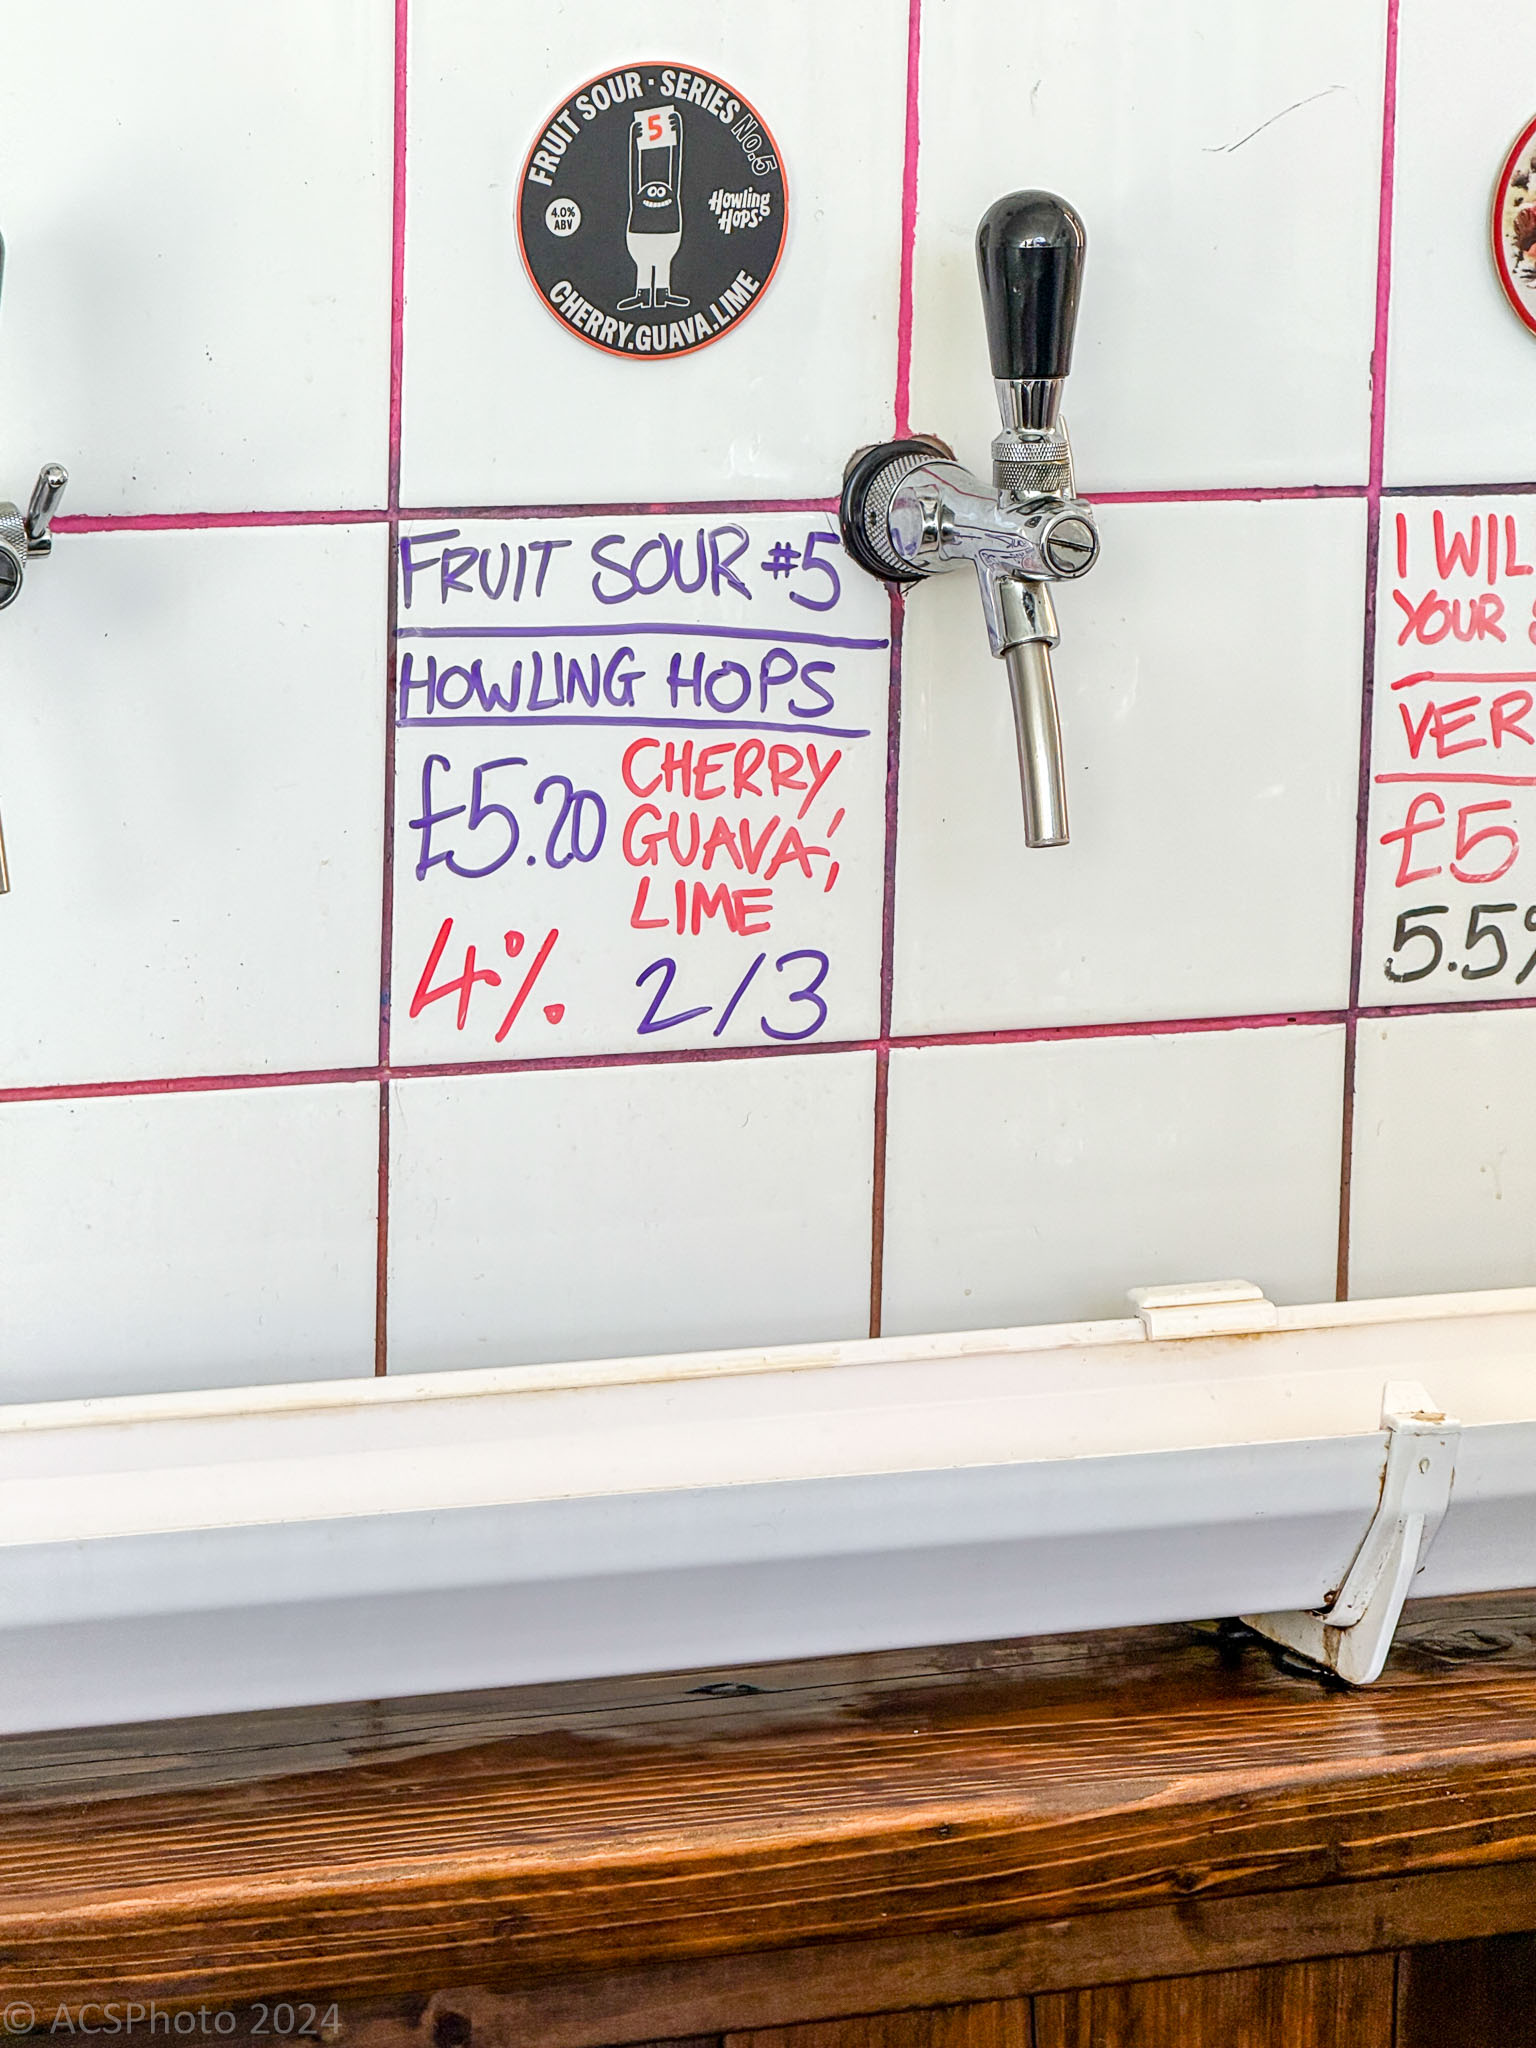 FRUIT SOUR · SERIES No.5
5
4.0%
ABV
Howling
HOPS.
CHERRY.GUAVA.LIME
FRUIT SOUR #5
HOWLING HOPS
£5.20
CHERRY,
GUAVA,
LIME
4%
2/3
I WIL
YOUR
VER
£5
5.5%
© ACSPhoto 2024